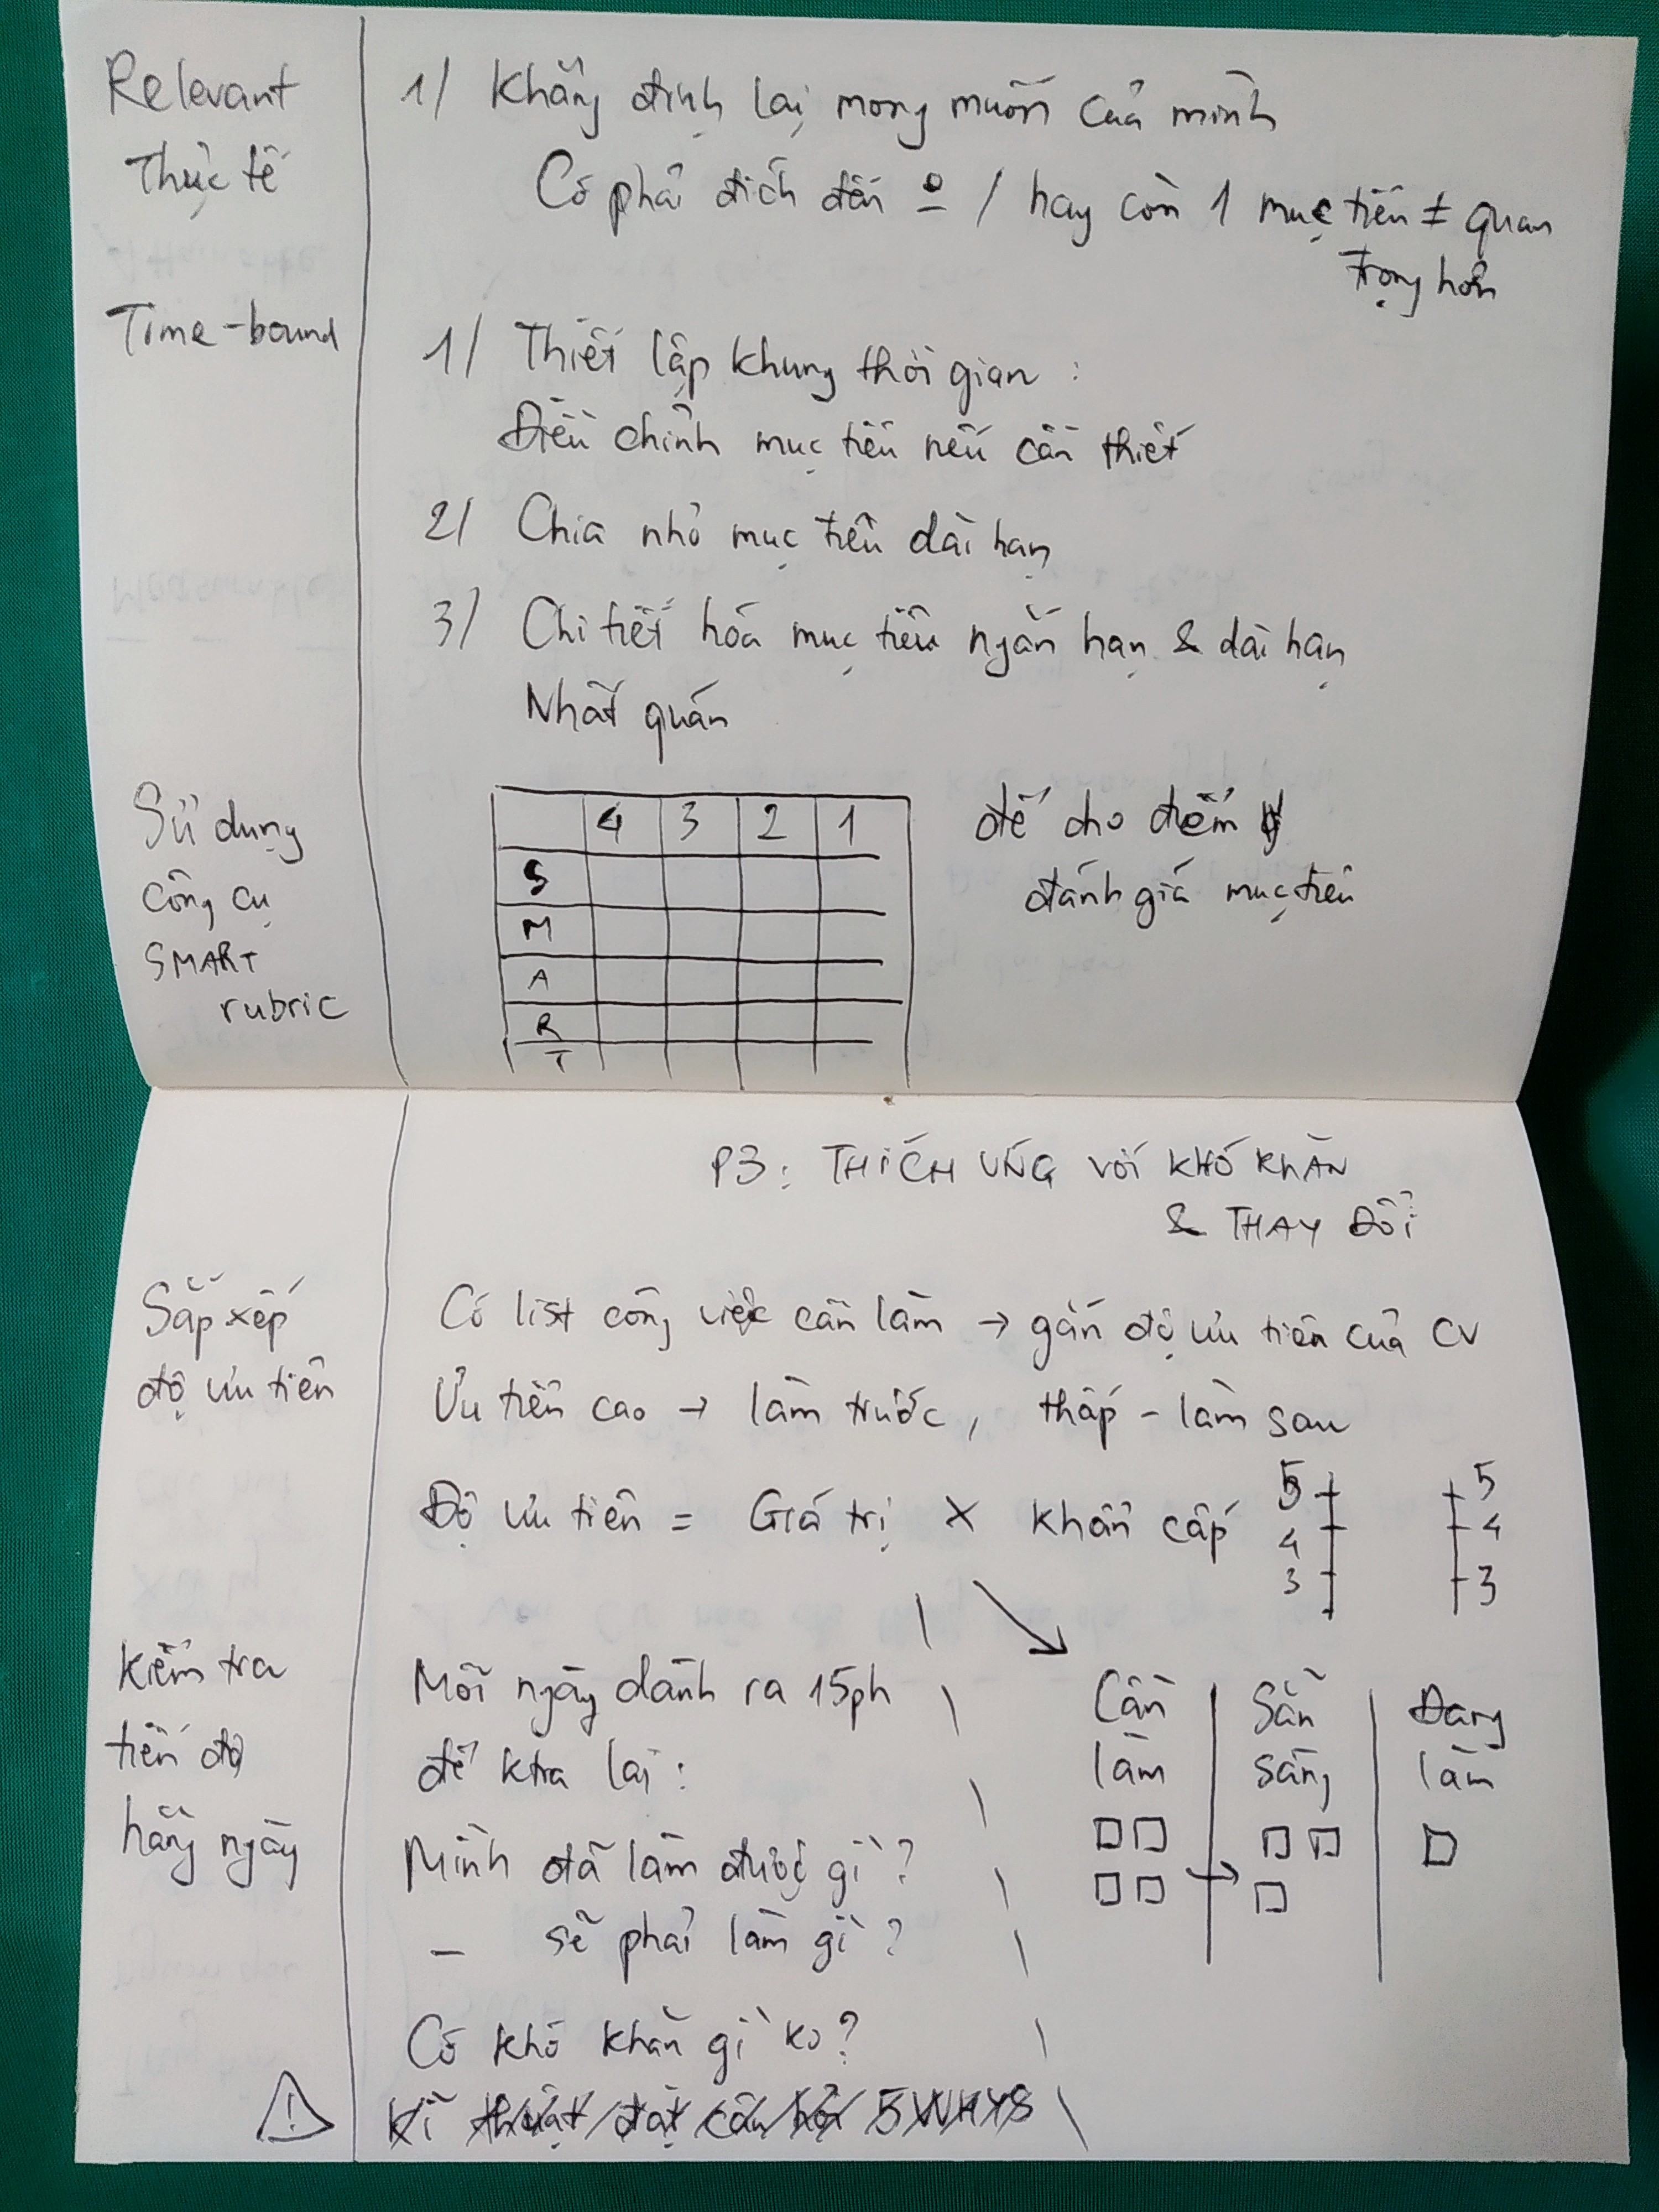 Relevant
Thực tế
1/ Khẳng định lại mong muốn của mình
Có phải đích đến / hay còn 1 mục tiêu ≠ quan
trọng hơn
Time-bound
1/ Thiết lập khung thời gian :
Điều chỉnh mục tiêu nếu cần thiết
2/ Chia nhỏ mục tiêu dài hạn
3/ Chi tiết hóa mục tiêu ngắn hạn & dài hạn
Nhất quán
Sử dụng
công cụ
SMART
rubric
4 3 2 1
S
M
A
R
T
để cho điểm
đánh giá mục tiêu
P3: THÍCH ỨNG VỚI KHÓ KHĂN
& THAY ĐỔI
Sắp xếp
độ ưu tiên
Có list công việc cần làm → gắn độ ưu tiên của CV
Ưu tiên cao → làm trước, thấp - làm sau
Độ ưu tiên = Giá trị x Khẩn cấp
5 5
4 4
3 3
Kiểm tra
tiến độ
hằng ngày
Mỗi ngày dành ra 15ph
để ktra lại :
Mình đã làm được gì ?
— sẽ phải làm gì ?
Có khó khăn gì ko ?
Cần
làm
Sẵn
sàng
Đang
làm
!
Kĩ thuật đặt câu hỏi 5 WHYS